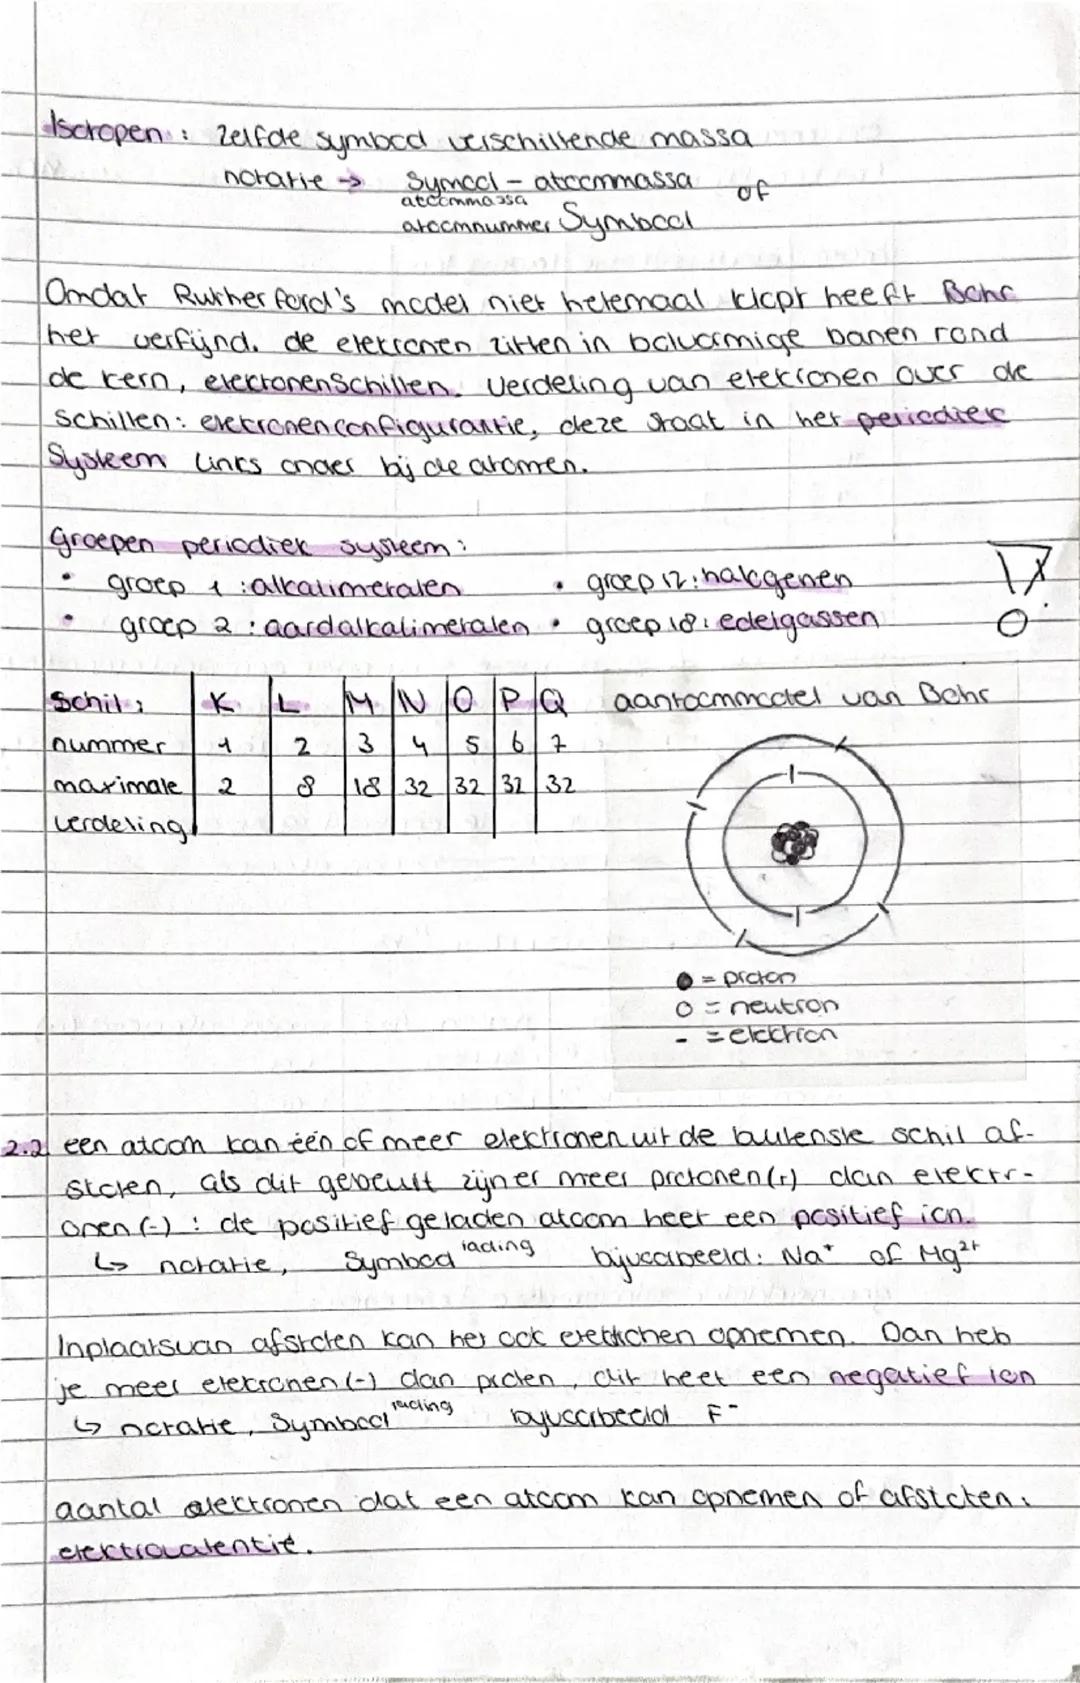 Isotopen : zelfde symbool verschillende massa
notatie → Symool - atoommassa of
atoommassa
atoomnummer Symbool
Omdat Rutherford's model niet helemaal klopt heeft Bohr
het verfijnd. de elektronen zitten in bolvormige banen rond
de kern, electonenschillen. Verdeling van elektronen over de
schillen: elektronenconfigurantie, deze staat in het periodiek
Systeem links onder bij de atomen.
groepen periodiek systeem:
• groep 1 : alkalimetalen • groep 17: halogenen
• groep 2 : aardalkalimetalen • groep 18: edelgassen
Schil: K L M N O P Q aantoommodel van Bohr
nummer 1 2 3 4 5 6 7
maximale 2 8 18 32 32 32 32
verdeling
● = proton
O = neutron
- = elektron
2.2 een atoom kan één of meer elektronen uit de buitenste schil af-
stoten, als dit gebeurt zijn er meer protonen (+) dan elektr-
onen (-) : de positief geladen atoom heet een positief ion.
↳ notatie, Symbool lading bijvoorbeeld: Na⁺ of Mg²⁺
Inplaatsvan afstoten kan het ook elektronen opnemen. Dan heb
je meer elektronen (-) dan proten, dit heet een negatief ion
↳ notatie, Symbool lading bijvoorbeeld F⁻
aantal elektronen dat een atoom kan opnemen of afstoten:
elektrovalentie.